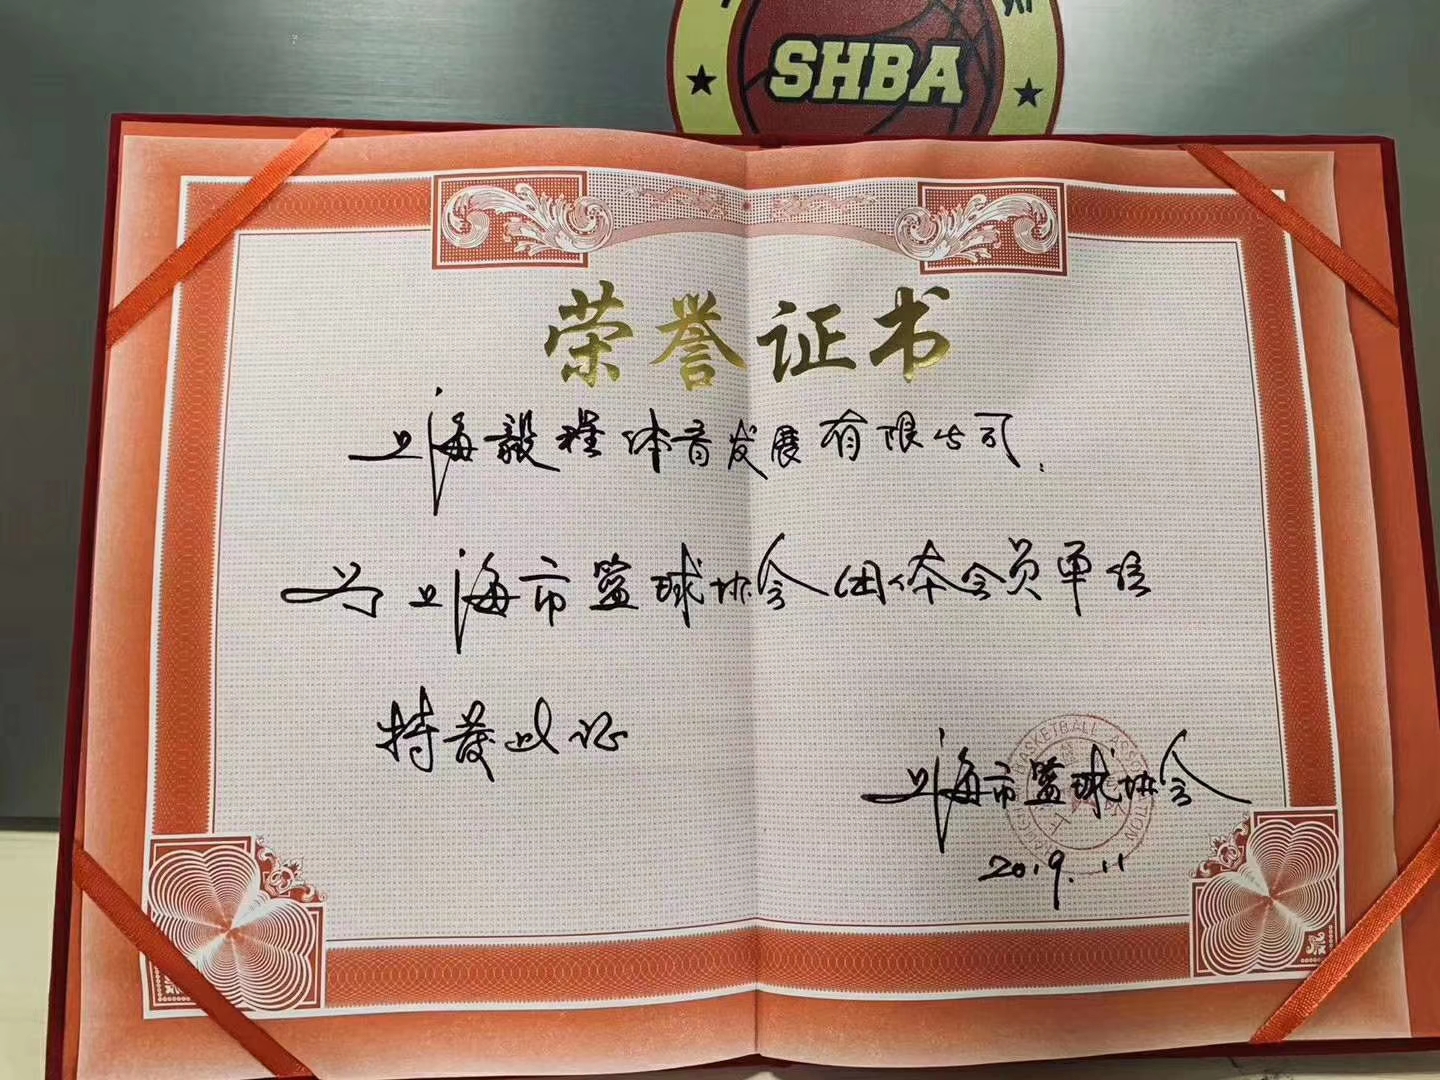 SHBA
荣誉证书
上海毅程体育发展有限公司.
为上海市篮球协会团体会员单位
特发以证
上海市篮球协会
BASKETBALL ASSO
2019.11